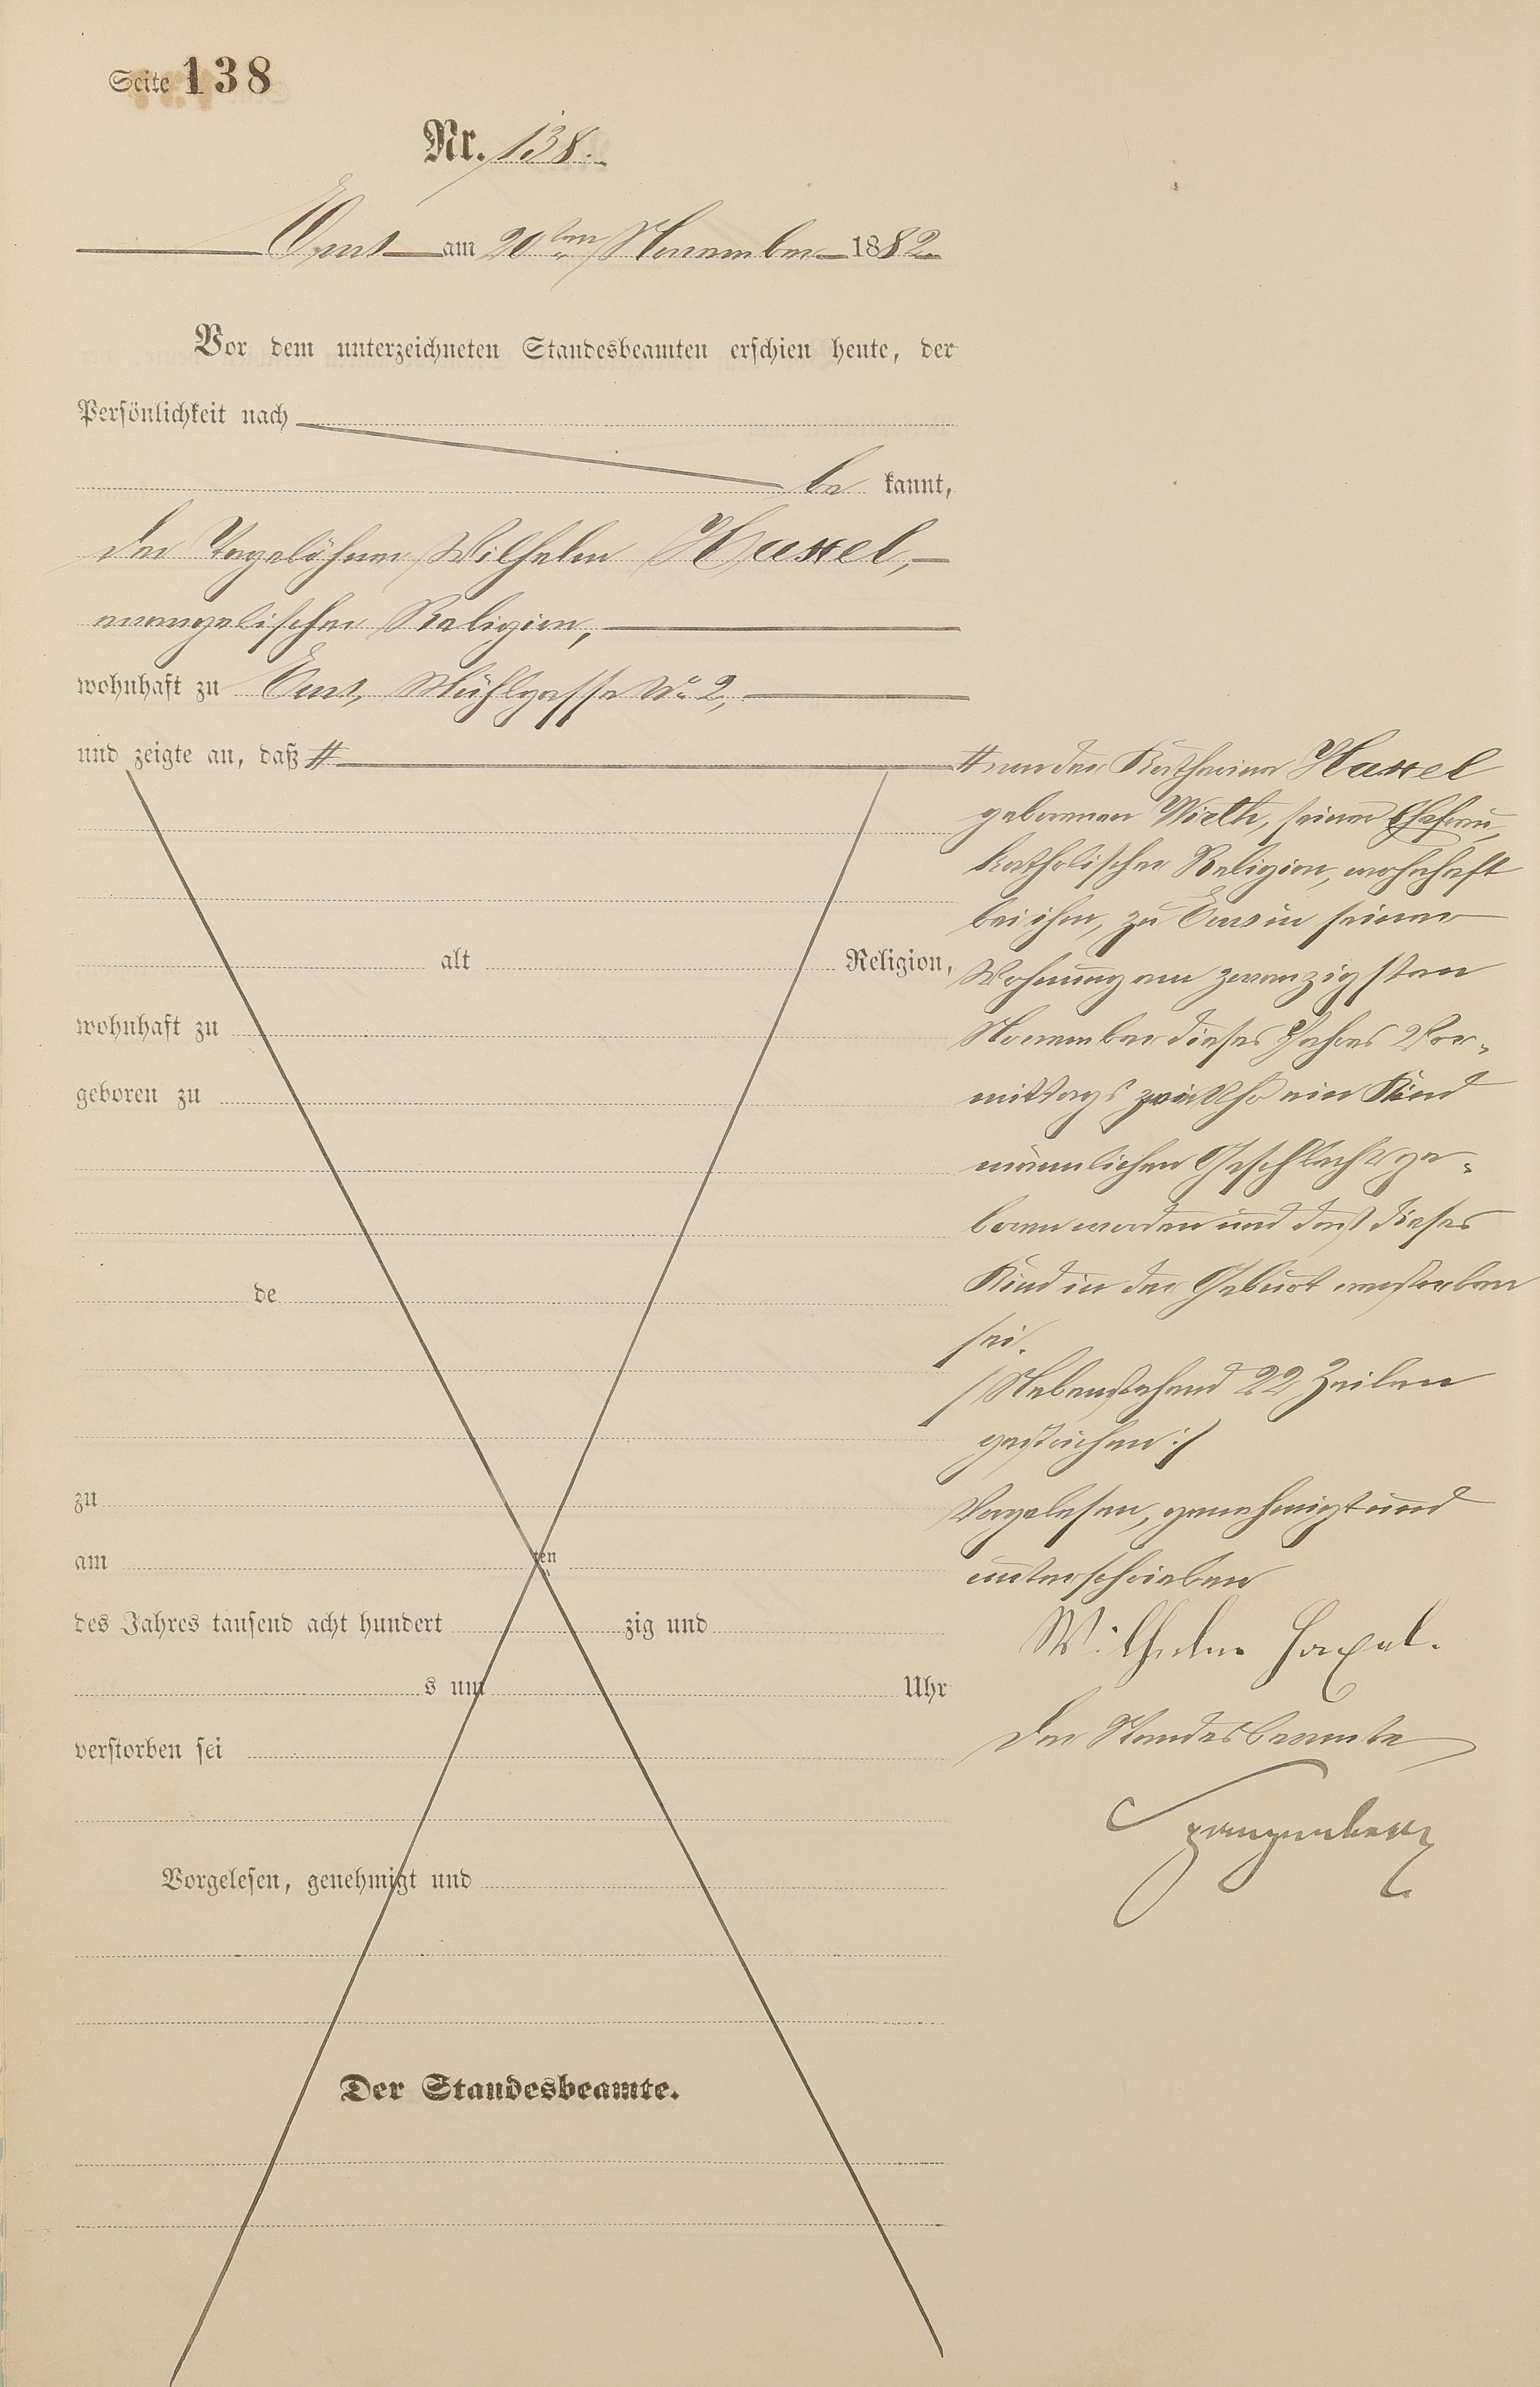 Seite 138
Nr. 138.
Ems am 20ten November 1882.
Vor dem unterzeichneten Standesbeamten erschien heute, der
Persönlichkeit nach
be kannt,
der Tagelöhner Wilhelm Haxel,
evangelischer Religion,
wohnhaft zu Ems, Mühlgasse No 2,
und zeigte an, daß #
alt Religion,
wohnhaft zu
geboren zu
de
zu
am ten
des Jahres tausend acht hundert zig und
s um Uhr
verstorben sei
Vorgelesen, genehmigt und
Der Standesbeamte.
# von der Katharina Haxel
geborenen Wirth, seiner Ehefrau,
katholischer Religion, wohnhaft
bei ihm, zu Ems in seiner
Wohnung am zwanzigsten
November dieses Jahres Vor-
mittags Uhr ein Kind
männlichen Geschlechts ge-
boren worden und daß dieses
Kind in der Geburt verstorben
sei.
/ Nebenstehend 22 Zeilen
gestrichen :/
Vorgelesen, genehmigt und
unterschrieben
Wilhelm Haxel.
Der Standesbeamte